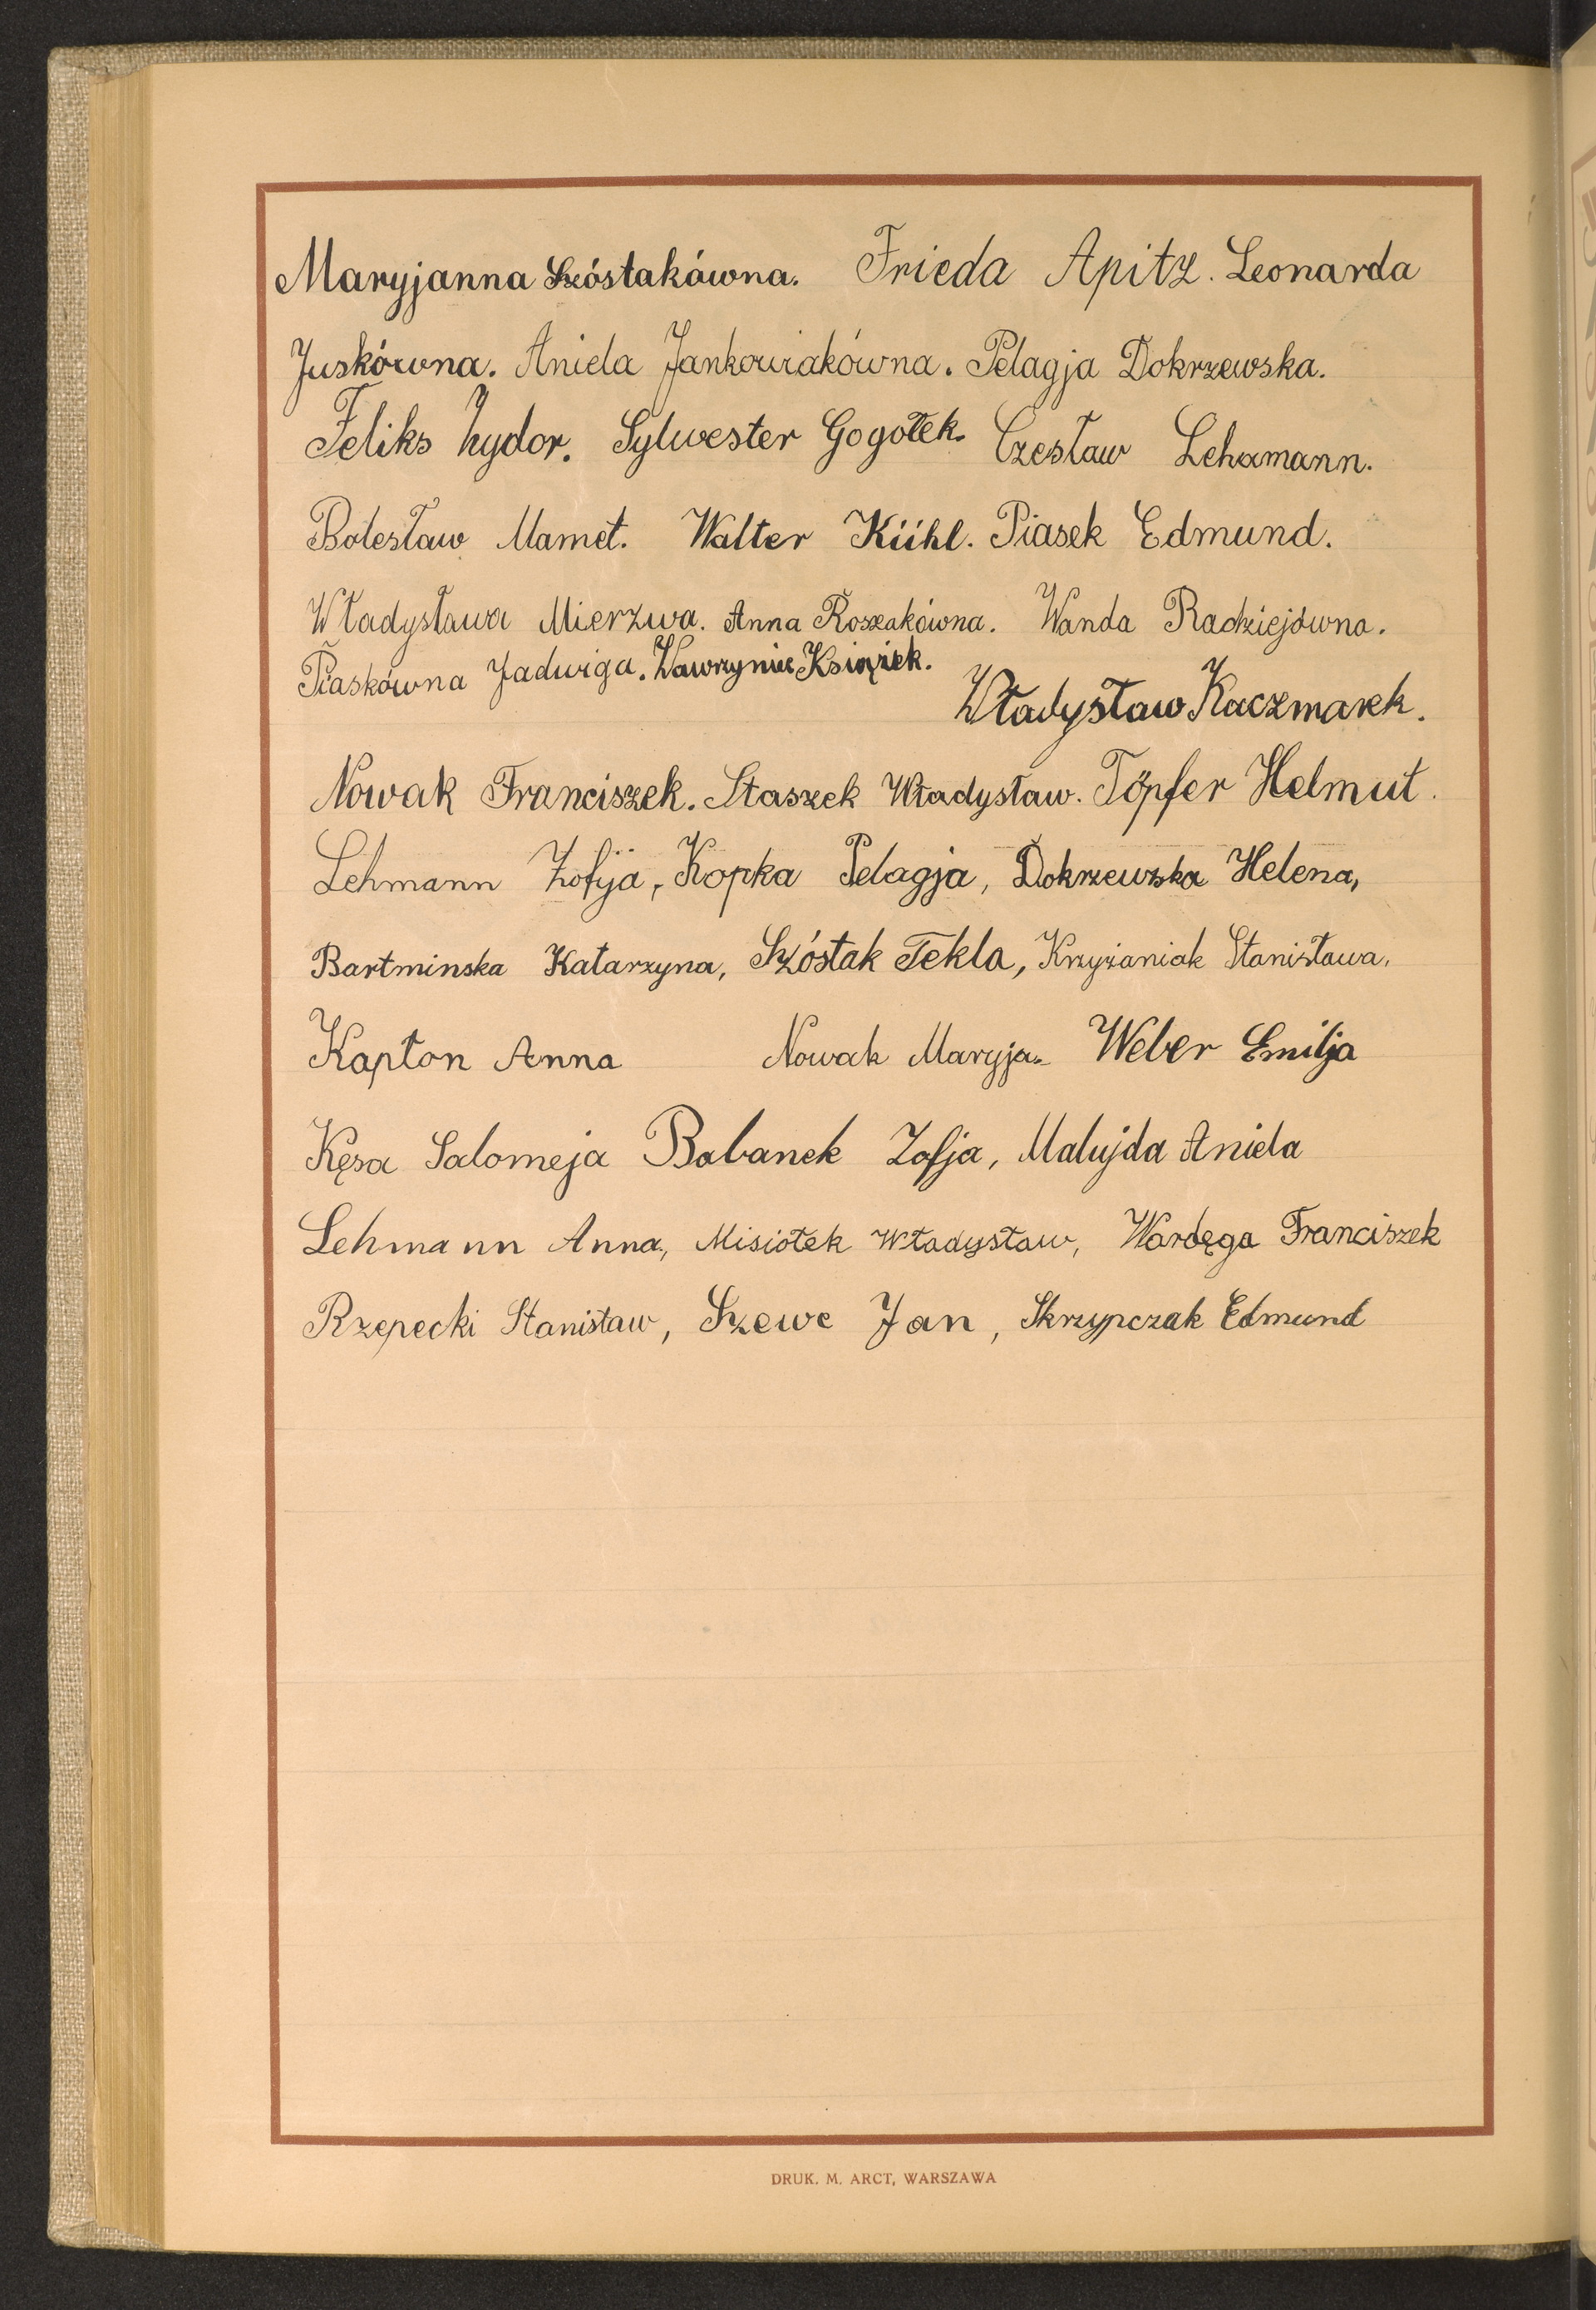 Maryjanna Szóstakówna. Frieda Apitz. Leonarda
Juskówna. Aniela Jankowiakówna. Pelagja Dokrzewska.
Feliks Zydor. Sylwester Gogołek. Czesław Lehamann.
Bolesław Mamet. Walter Kühl. Piasek Edmund.
Władysława Mierzwa. Anna Roszakówna. Wanda Radziejówna.
Piaskówna Jadwiga. Wawrzyniec Książek.
Władysław Kaczmarek.
Nowak Franciszek. Staszek Władysław. Töpfer Helmut.
Lehmann Zofija, Kopka Pelagja, Dokrzewska Helena,
Bartminska Katarzyna, Szóstak Tekla, Krzyżaniak Stanisława,
Kapton Anna Nowak Maryja. Weber Emilja
Kęsa Salomeja Babanek Zofja, Malujda Aniela
Lehmann Anna, Misiołek Władysław, Wardęga Franciszek
Rzepecki Stanisław, Szewc Jan, Skrzypczak Edmund
DRUK. M. ARCT, WARSZAWA